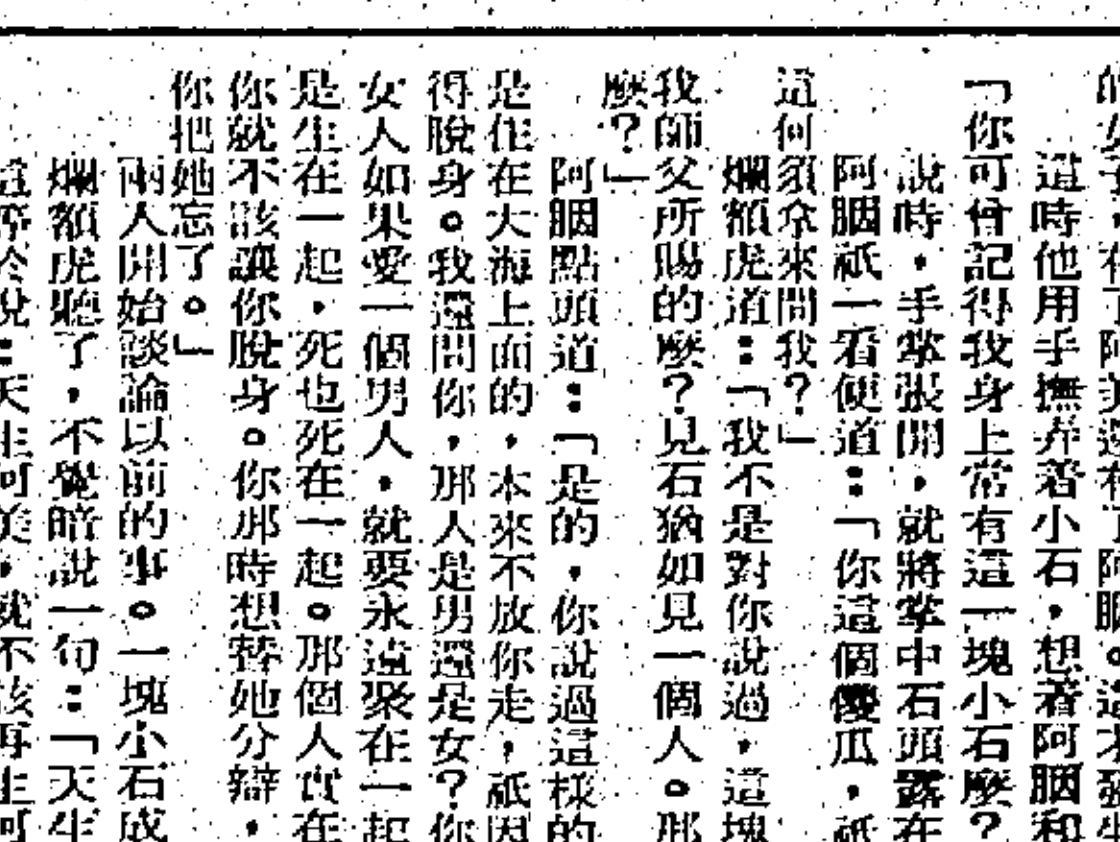 這時他用手撫弄着小石，想着阿胭和
「你可曾記得我身上常有這一塊小石麽？
說時，手掌張開，就將掌中石頭露在
阿胭祇一看便道：「你這個傻瓜，祇
這何須拿來問我？」
爛額虎道：「我不是對你說過，這塊
我師父所賜的麽？見石猶如見一個人。那
麽？」
阿胭點頭道：「是的，你說過這樣的
是住在大海上面的，本來不放你走，祇因
得脫身。我還問你，那人是男還是女？你
女人如果愛一個男人，就要永遠聚在一起
是生在一起，死也死在一起。那個人實在
你就不該讓你脫身。你那時想替她分辯，
你把她忘了。」
兩人開始談論以前的事。一塊小石成
爛額虎聽了，不覺暗說一句：「天生
天生可美，就不該再生可